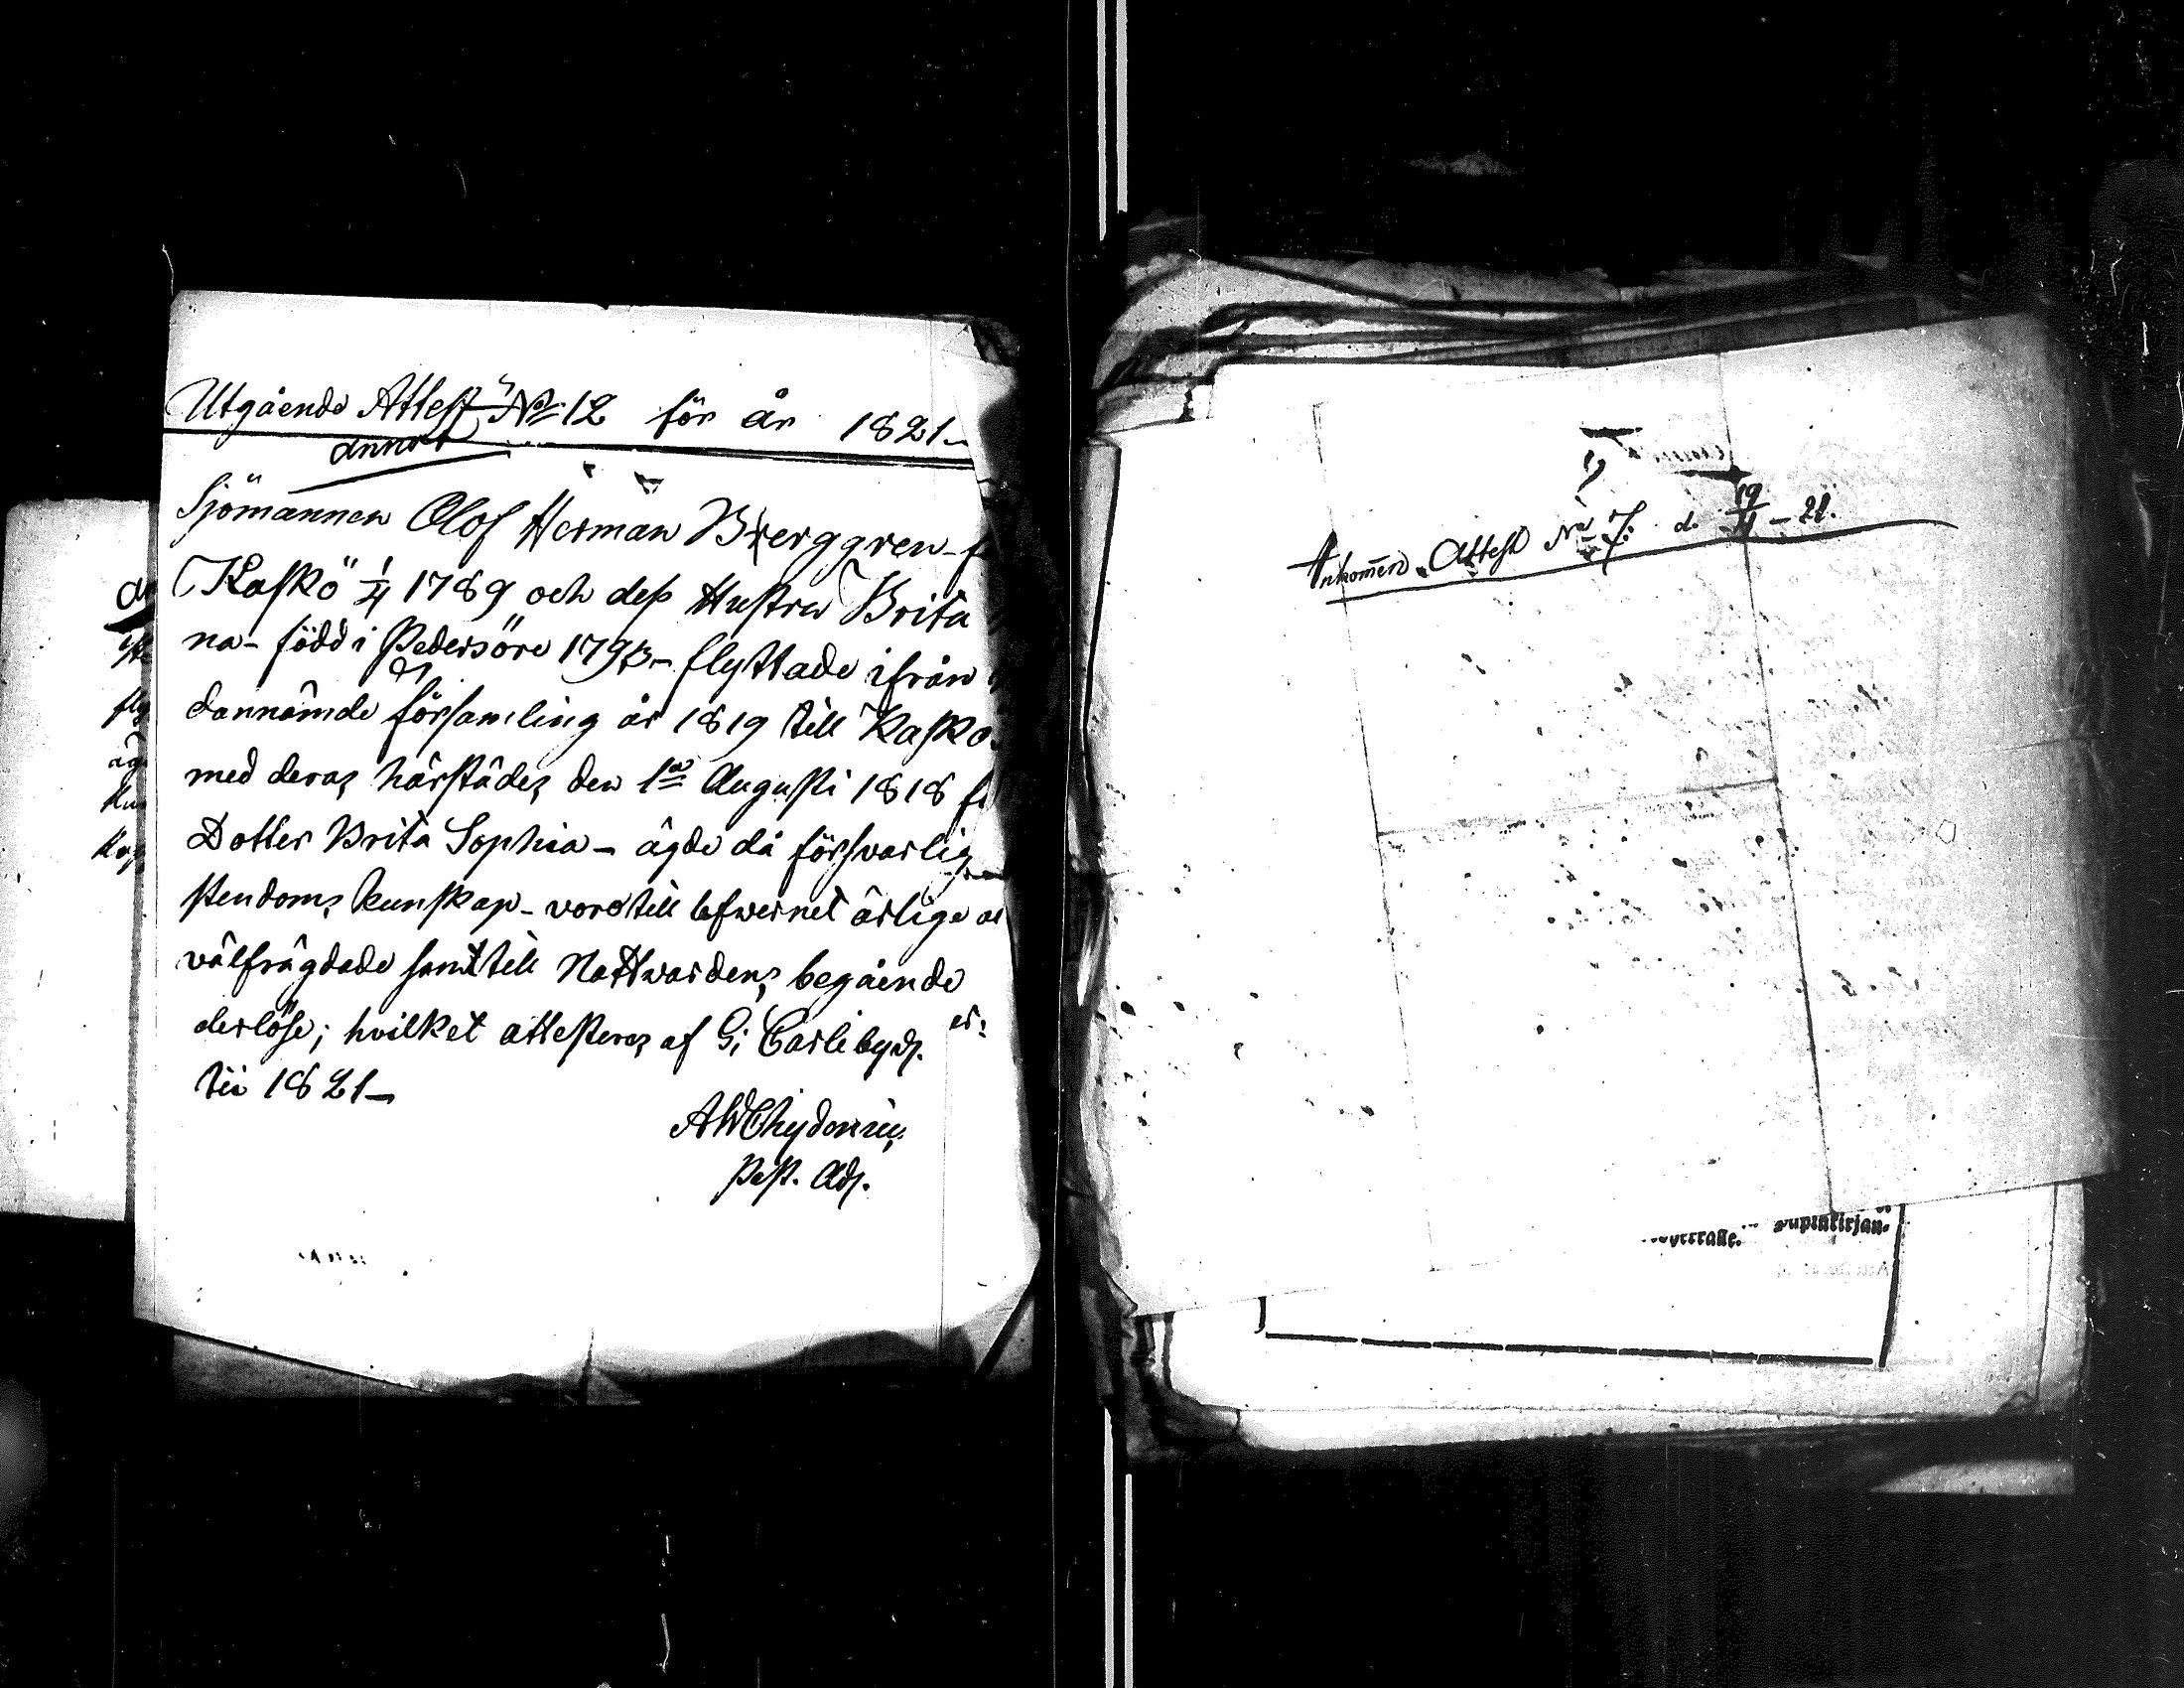 Utgående Attest No 12 för år 1821
annot
Sjömannen Olof Herman Berggren - f
Kaskö 1/4 1789 och dess Hustru Brita
na - född i Pedersöre 1793 - flyttade ifrån
dannämde församling år 1819 till Kaskö
med deras härstädes den 1a Augusti 1818 fö
Dotter Brita Sophia - ägde då försvarlig
stendoms kunskap - voro till lefwernet ärlige oc
välfrägdade samt till Nattwardens begående
derlöse; hvilket attesteras af G: Carleby d.
tii 1821
AWChydenius
Past. Adj.
Inkommen Attest No 7. d. 19/4 - 21.